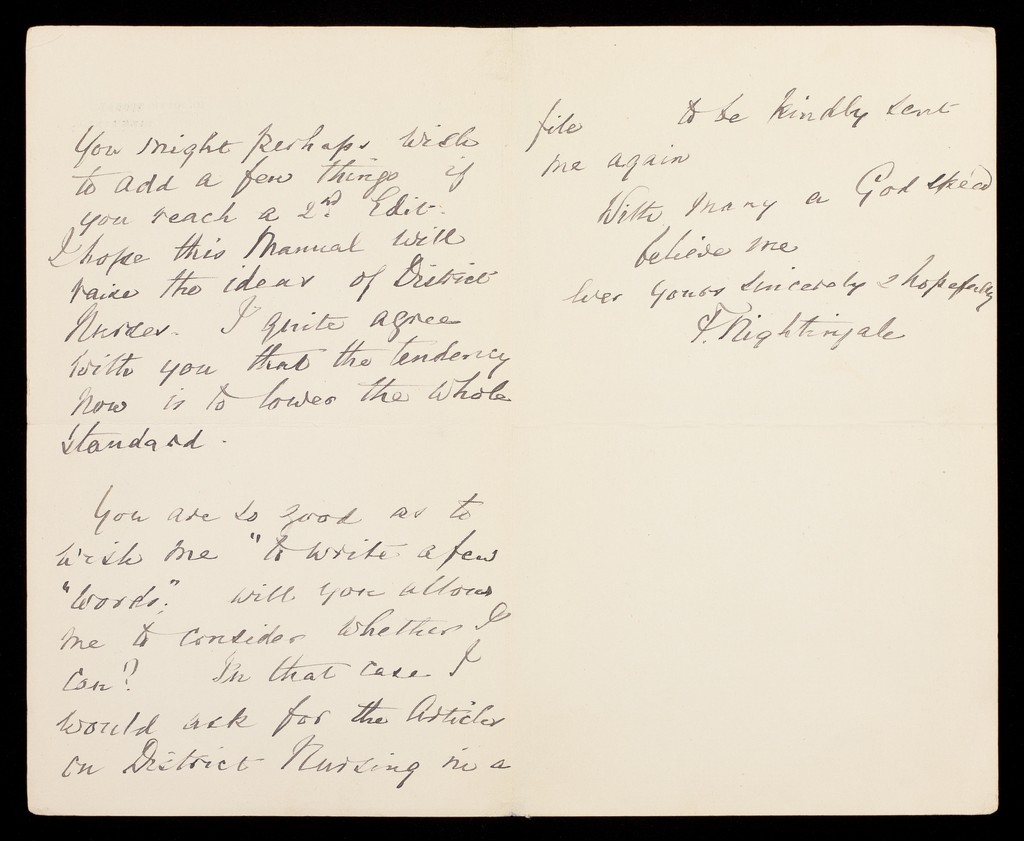 You might perhaps wish
to add a few things if
you reach a 2nd. Edit.
I hope this Manual will
raise the ideas of District
Nurses. I quite agree
with you that the tendency
now is to lower the whole
standard.
You are so good as to
wish me "to write a few
"words": will you allow
me to consider whether I
can? In that case I
would ask for the Articles
on District Nursing in a
file to be kindly sent
me again
With many a God speed
believe me
ever yours sincerely & hopefully
F. Nightingale